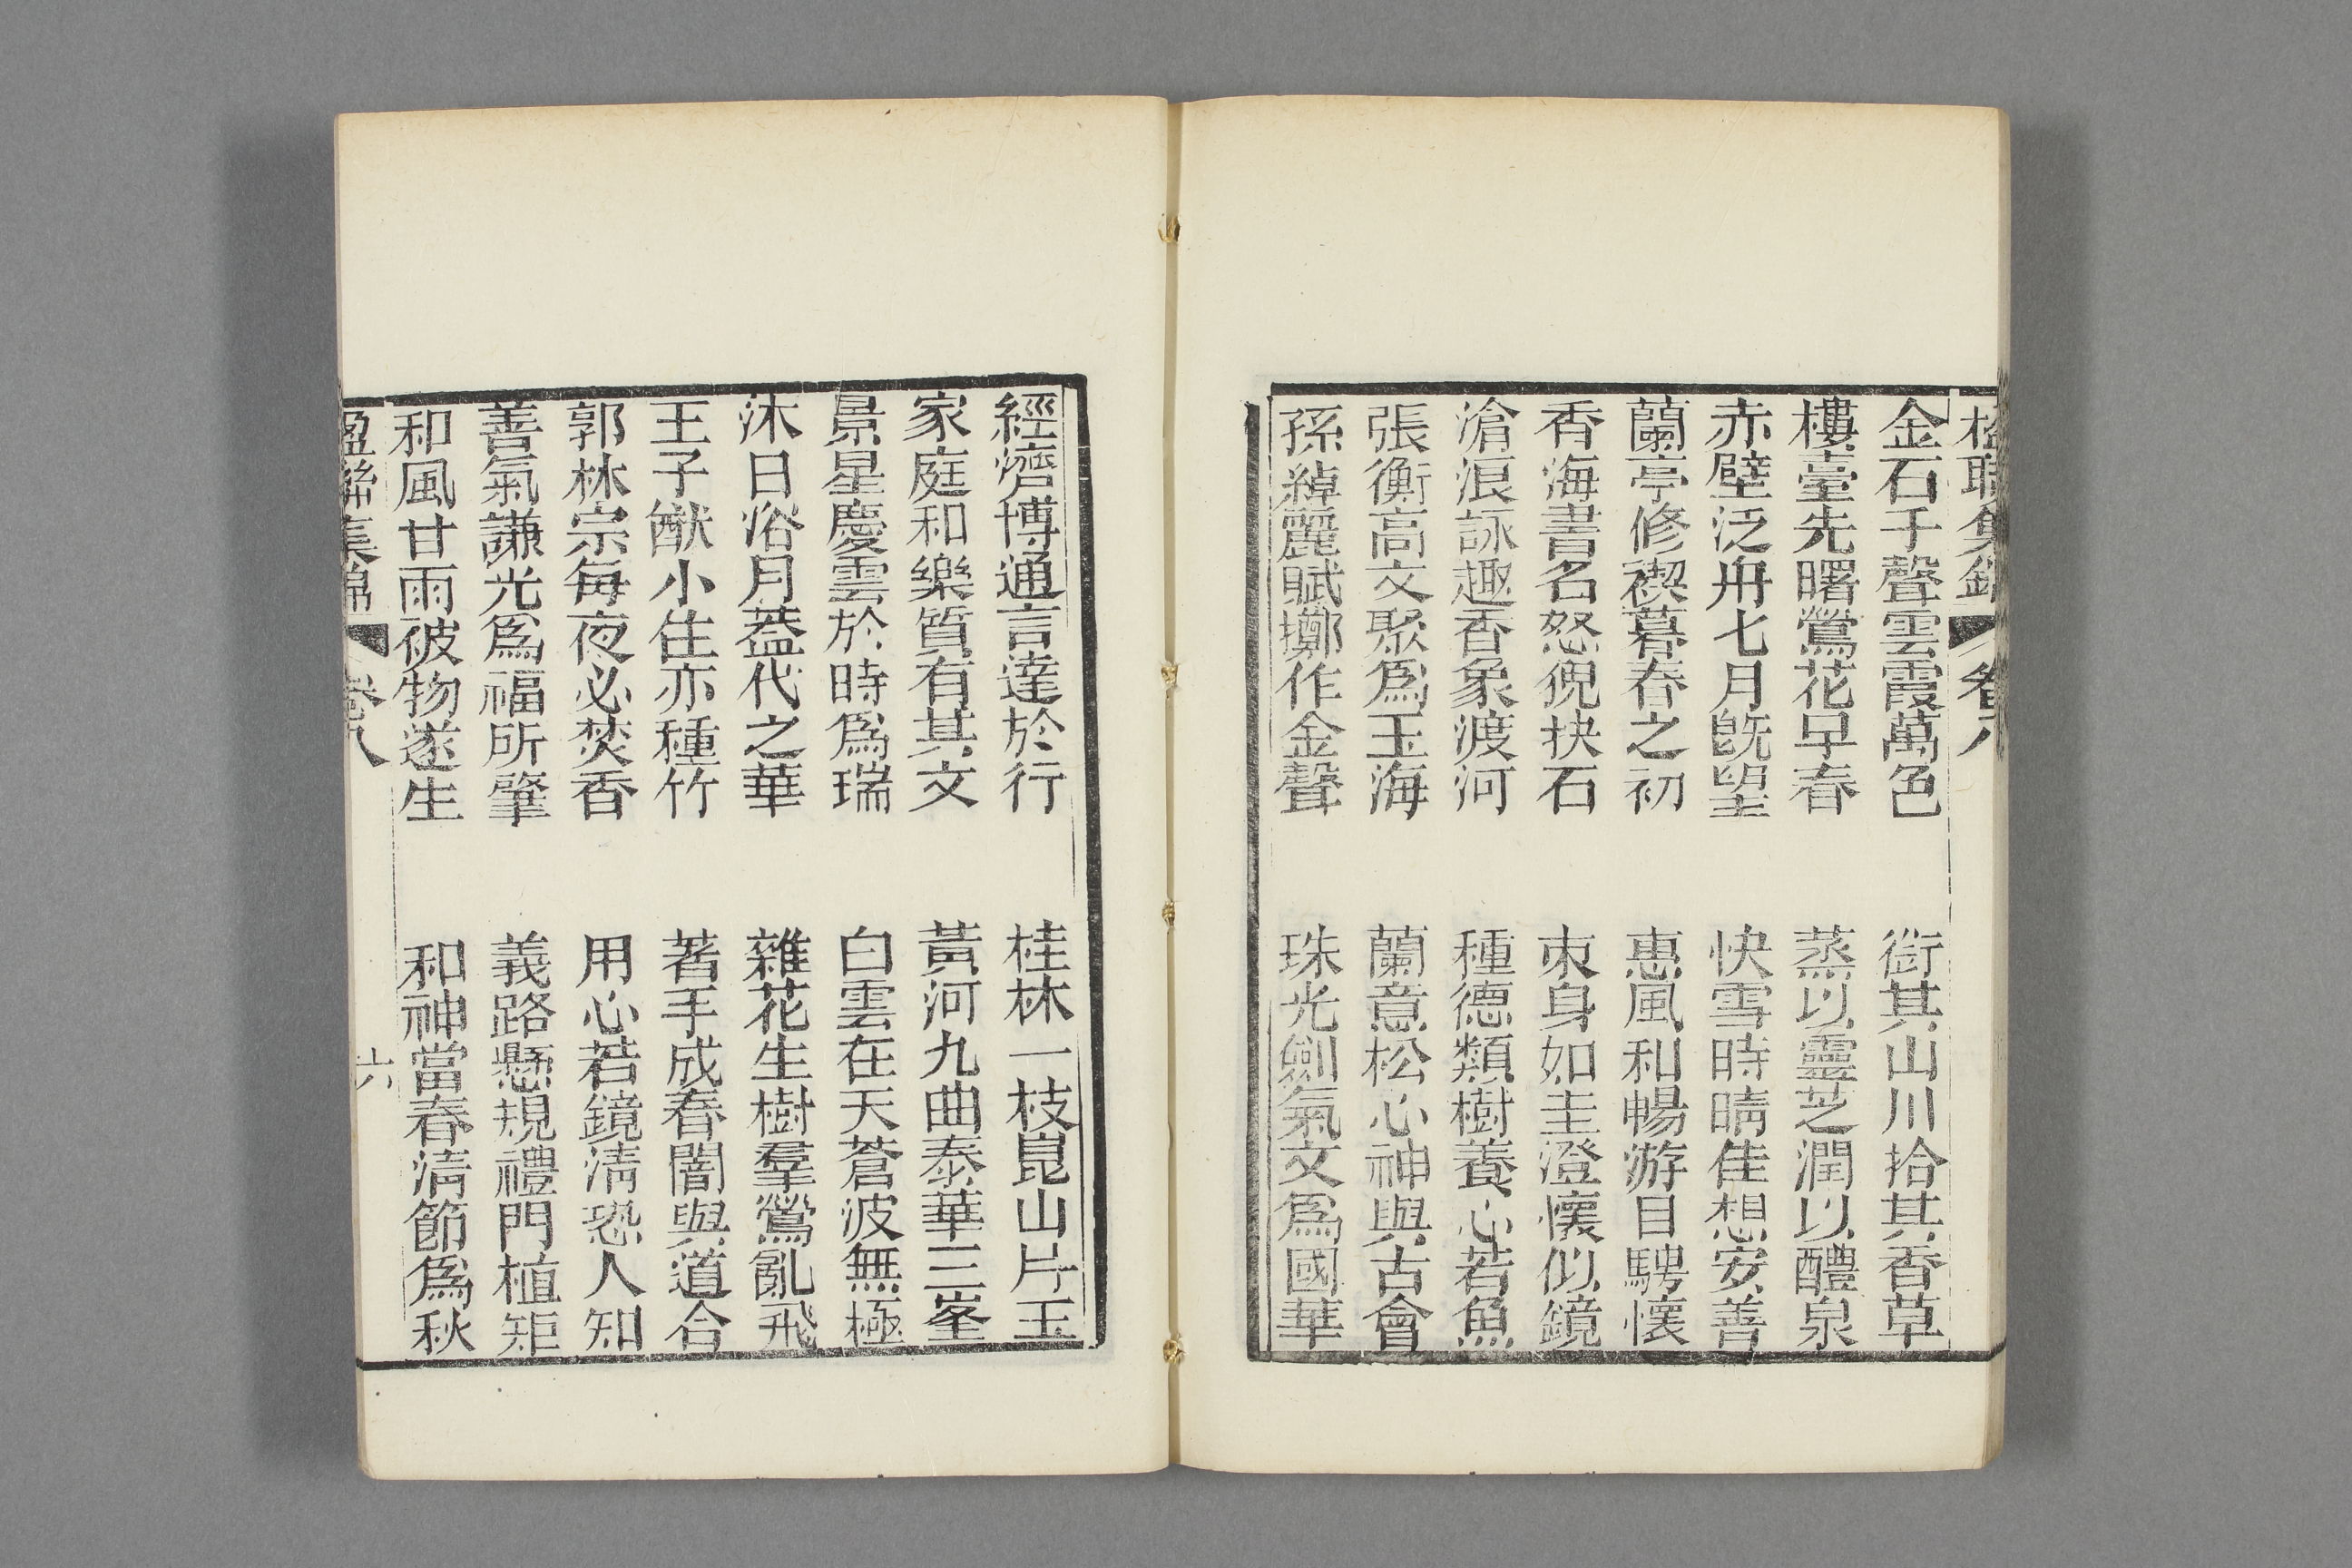 楹聯集錦 卷八
金石千聲雲霞萬色 銜其山川拾其香草
樓臺先曙鶯花早春 蒸以靈芝潤以醴泉
赤壁泛舟七月旣望 快雪時晴佳想安善
蘭亭修禊暮春之初 惠風和暢游目騁懷
香海書名怒猊抉石 束身如圭澄懷似鏡
滄浪詠趣香象渡河 種德類樹養心若魚
張衡高文聚爲玉海 蘭意松心神與古會
孫綽麗賦擲作金聲 珠光劍氣文爲國華
經濟博通言達於行 桂林一枝崑山片玉
家庭和樂質有其文 黃河九曲泰華三峯
景星慶雲於時爲瑞 白雲在天蒼波無極
沐日浴月葢代之華 雜花生樹羣鶯亂飛
王子猷小住亦種竹 著手成春闇與道合
郭林宗每夜必焚香 用心若鏡淸恐人知
善氣謙光爲福所肇 義路懸規禮門植矩
和風甘雨被物遂生 和神當春淸節爲秋
楹聯集錦 卷八 六